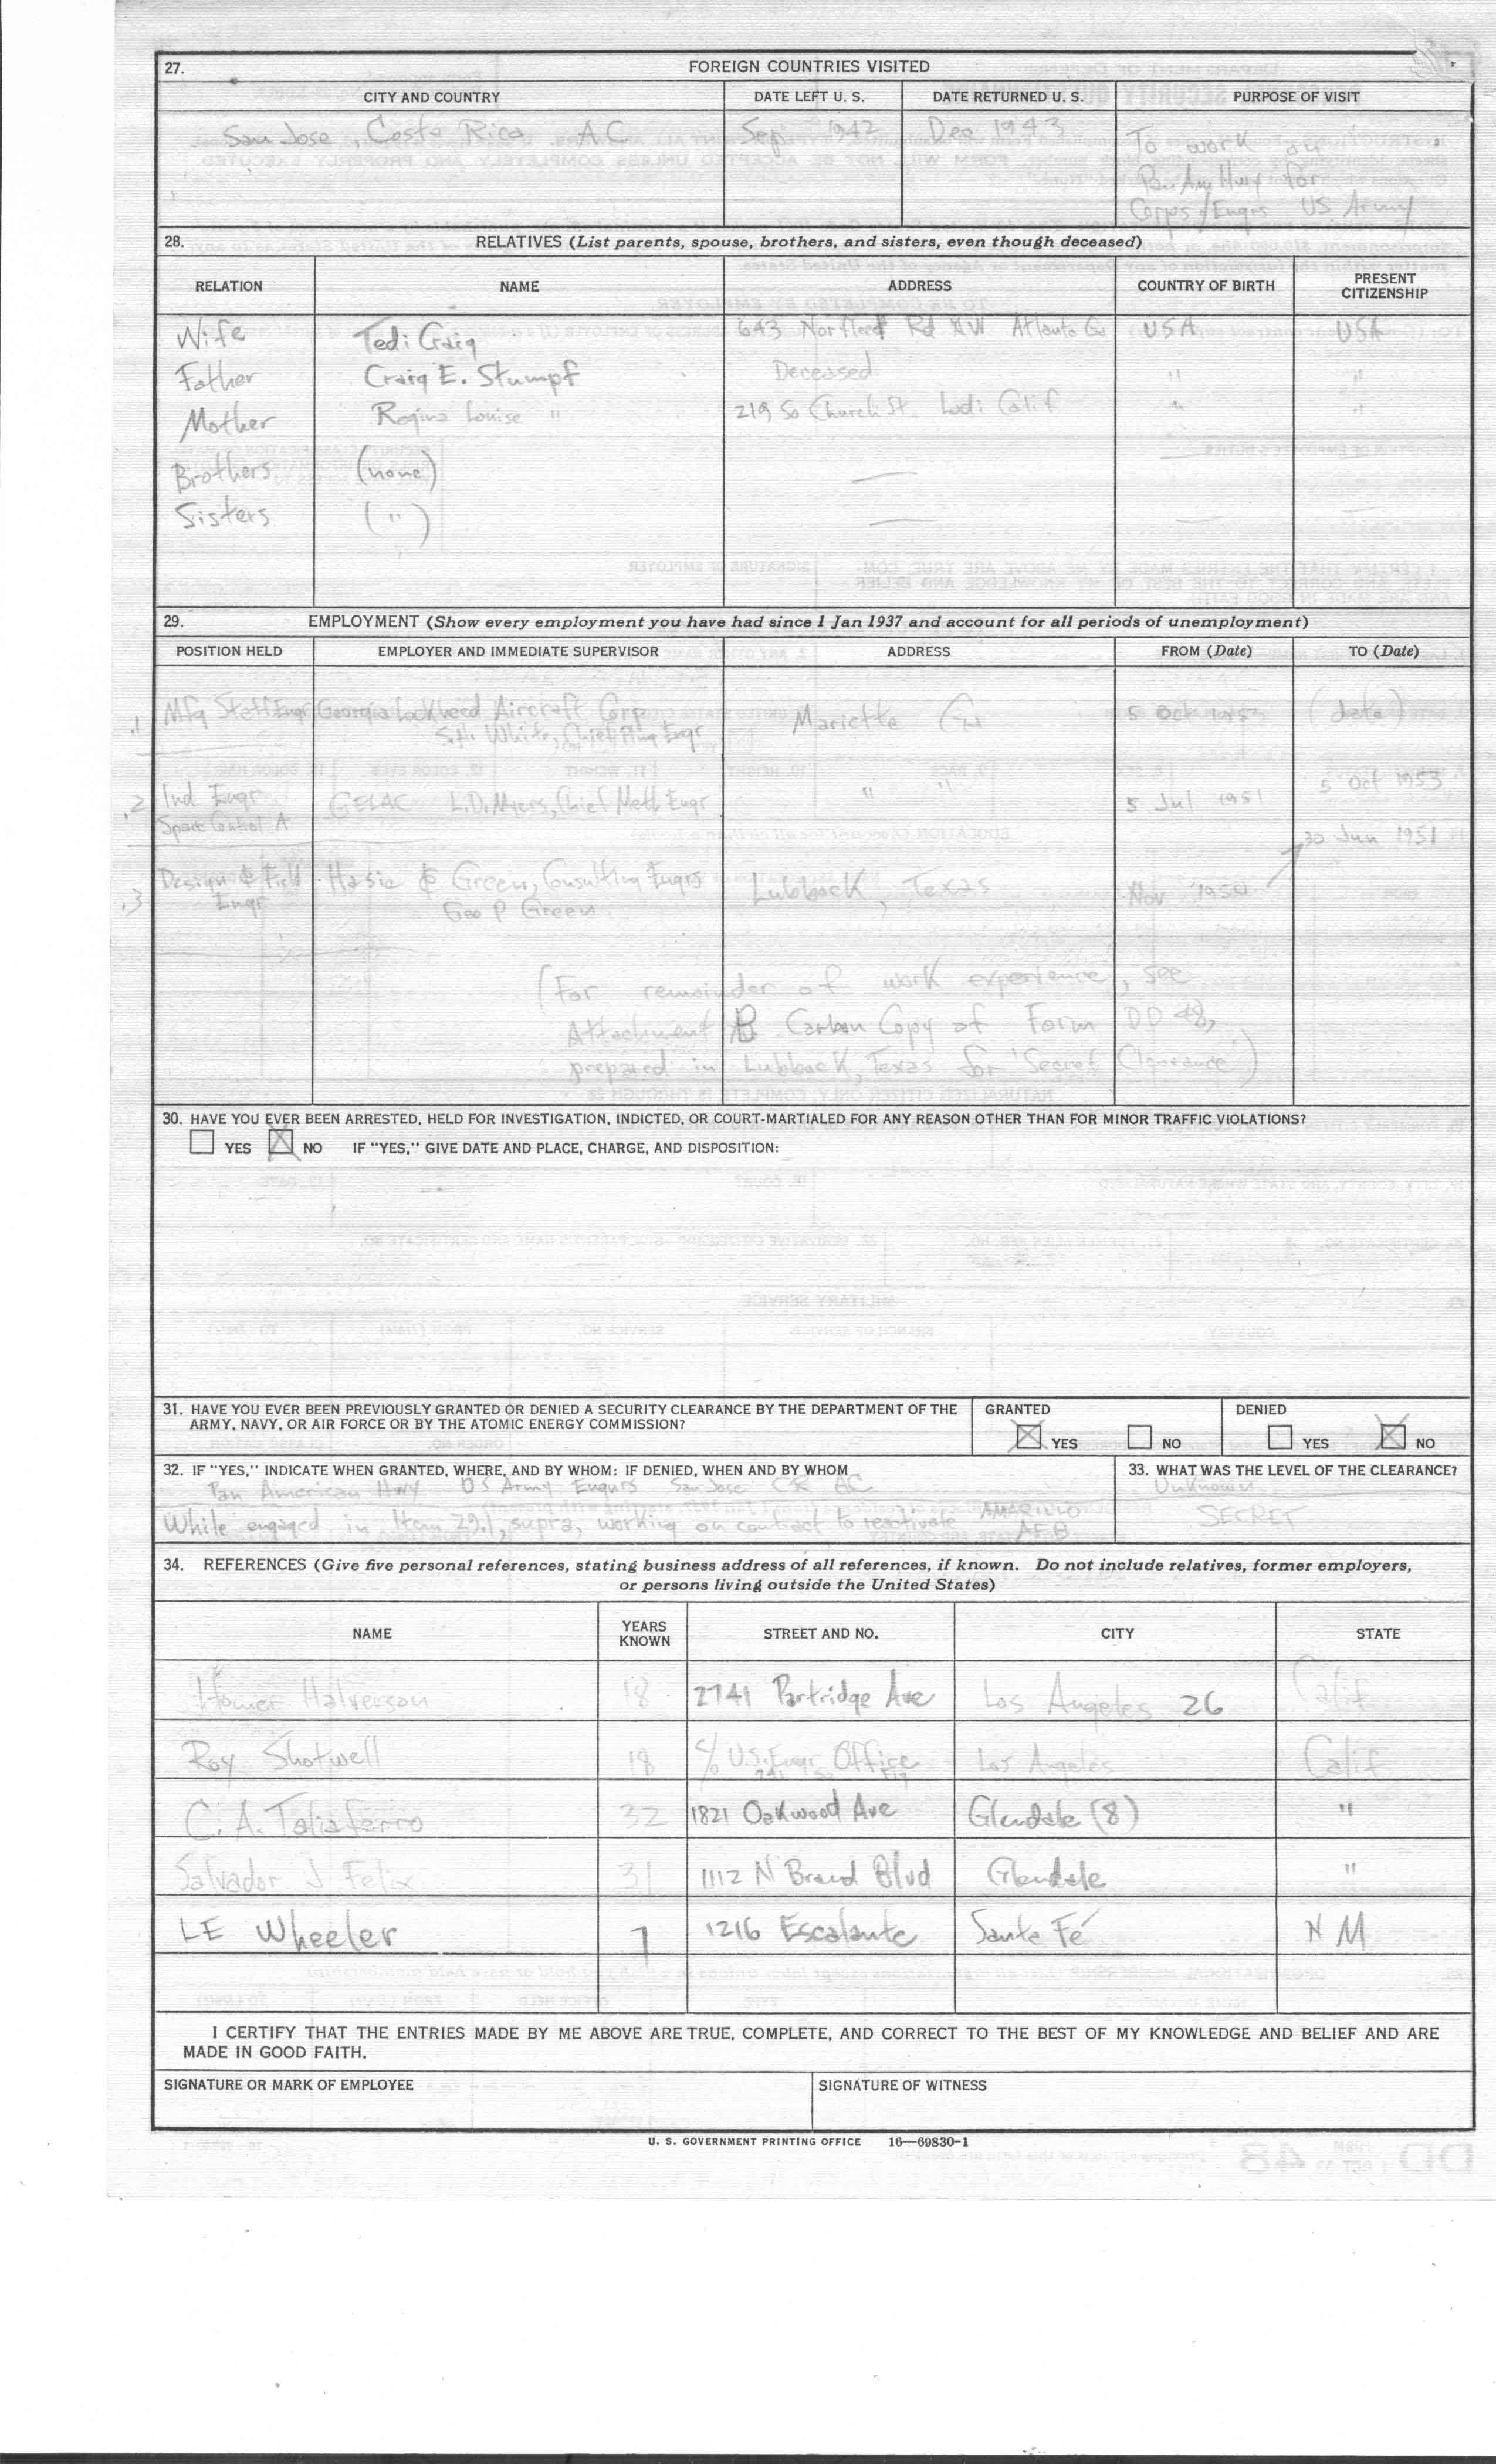 27. FOREIGN COUNTRIES VISITED
CITY AND COUNTRY DATE LEFT U. S. DATE RETURNED U. S. PURPOSE OF VISIT
San Jose, Costa Rica A.C Sep 1942 Dec 1943 To work on
Pan Am Hwy for
Corps/Engrs US Army
28. RELATIVES (List parents, spouse, brothers, and sisters, even though deceased)
RELATION NAME ADDRESS COUNTRY OF BIRTH PRESENT CITIZENSHIP
Wife Tedi Craig 643 Norfleet Rd NW Atlanta Ga USA USA
Father Craig E. Stumpf Deceased " "
Mother Regina Louise " 219 So Church St. Lodi Calif " "
Brothers (none) —
Sisters ( " ) — — —
29. EMPLOYMENT (Show every employment you have had since 1 Jan 1937 and account for all periods of unemployment)
POSITION HELD EMPLOYER AND IMMEDIATE SUPERVISOR ADDRESS FROM (Date) TO (Date)
.1 Mfg Staff Engr Georgia Lockheed Aircraft Corp Marietta Ga 5 Oct 1953 (date)
White, Chief Plng Engr
.2 Ind Engr GELAC L.D. Myers, Chief Meth Engr " " 5 Jul 1951 5 Oct 1953
Space Control A
30 Jun 1951
.3 Design & Field Engr Hasie & Green, Consulting Engrs Lubbock, Texas Nov 1950
Geo P Green
(For remainder of work experience, see
Attachment B Carbon Copy of Form DD 48,
prepared in Lubbock, Texas for 'Secret Clearance')
30. HAVE YOU EVER BEEN ARRESTED, HELD FOR INVESTIGATION, INDICTED, OR COURT-MARTIALED FOR ANY REASON OTHER THAN FOR MINOR TRAFFIC VIOLATIONS?
YES X NO IF "YES," GIVE DATE AND PLACE, CHARGE, AND DISPOSITION:
31. HAVE YOU EVER BEEN PREVIOUSLY GRANTED OR DENIED A SECURITY CLEARANCE BY THE DEPARTMENT OF THE GRANTED DENIED
ARMY, NAVY, OR AIR FORCE OR BY THE ATOMIC ENERGY COMMISSION? X YES NO YES X NO
32. IF "YES," INDICATE WHEN GRANTED, WHERE, AND BY WHOM; IF DENIED, WHEN AND BY WHOM 33. WHAT WAS THE LEVEL OF THE CLEARANCE?
Pan American Hwy US Army Engnrs San Jose CR AC Unknown
While engaged in Item 29.1, supra, working on contract to reactivate AMARILLO AFB SECRET
34. REFERENCES (Give five personal references, stating business address of all references, if known. Do not include relatives, former employers,
or persons living outside the United States)
NAME YEARS KNOWN STREET AND NO. CITY STATE
Homer Halverson 18 2741 Partridge Ave Los Angeles 26 Calif
Roy Shotwell 18 c/o U.S. Engr Office Los Angeles Calif
C. A. Taliaferro 32 1821 Oakwood Ave Glendale (8) "
Salvador J Felix 31 1112 N Brand Blvd Glendale "
LE Wheeler 7 1216 Escalante Santa Fé N M
I CERTIFY THAT THE ENTRIES MADE BY ME ABOVE ARE TRUE, COMPLETE, AND CORRECT TO THE BEST OF MY KNOWLEDGE AND BELIEF AND ARE
MADE IN GOOD FAITH.
SIGNATURE OR MARK OF EMPLOYEE SIGNATURE OF WITNESS
U. S. GOVERNMENT PRINTING OFFICE 16—69830-1